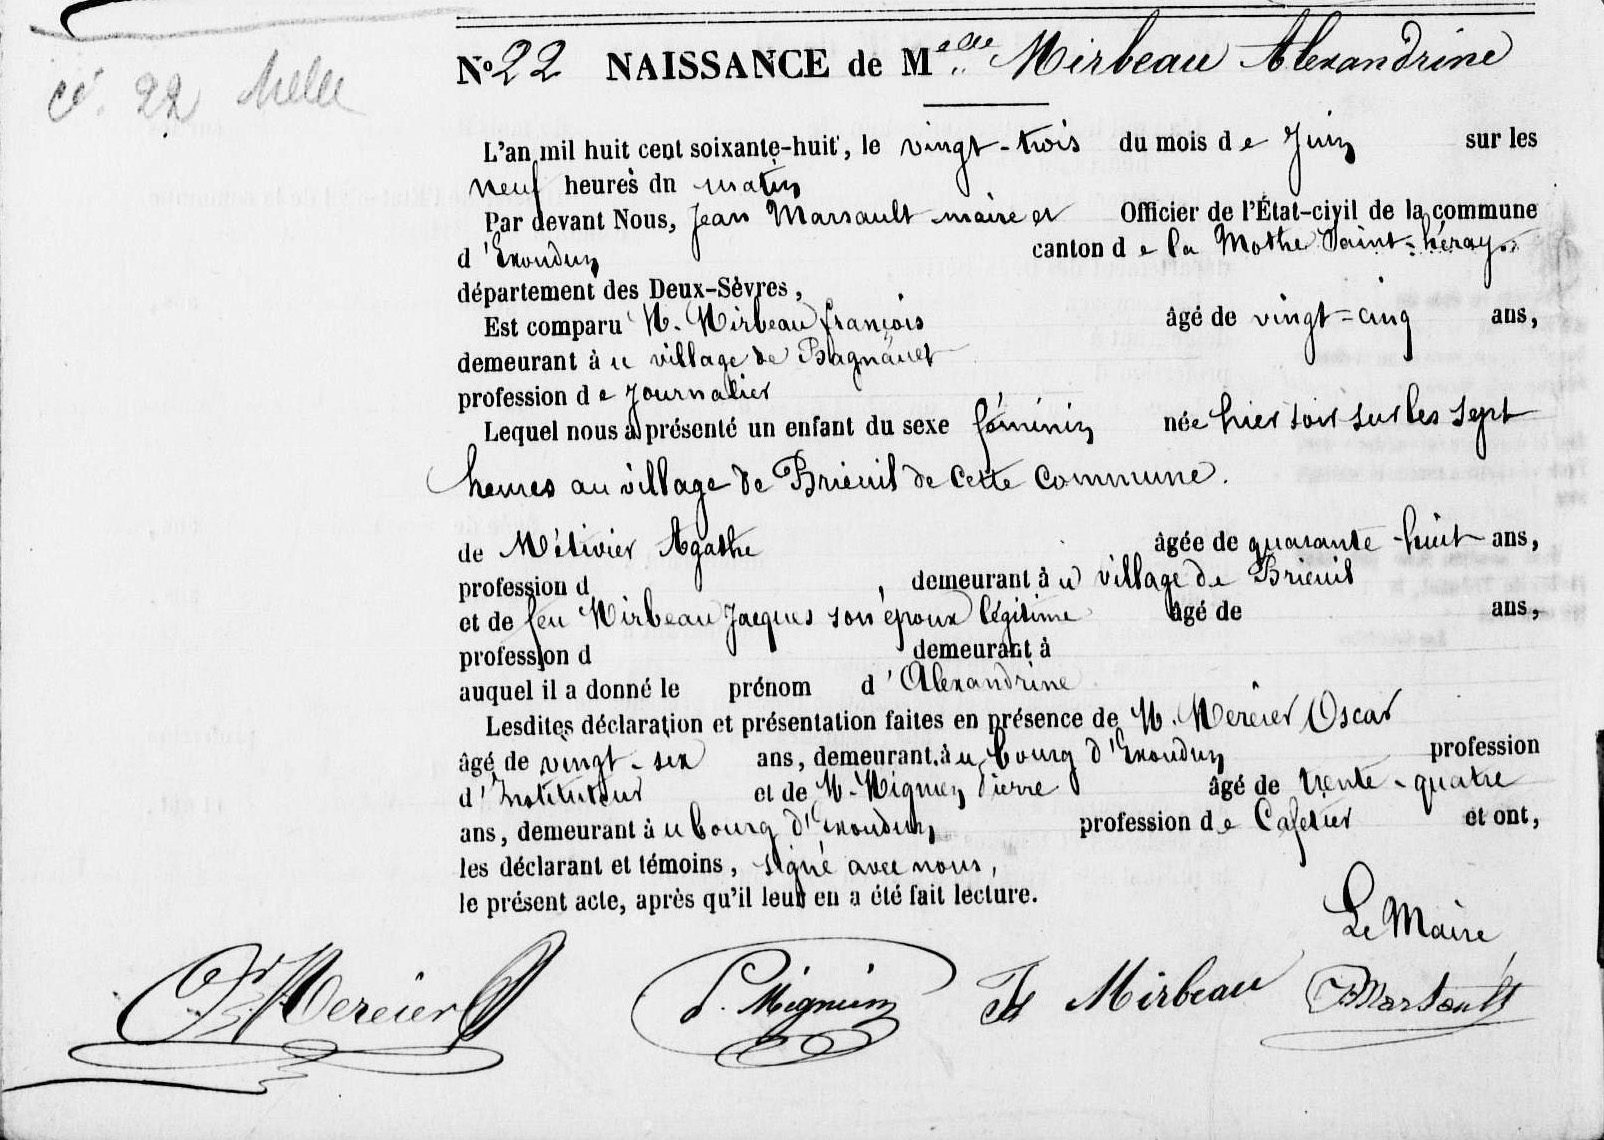 No 22 NAISSANCE de Melle Mirbeau Alexandrine
22
L'an mil huit cent soixante-huit, le vingt-trois du mois de Juin sur les
neuf heures du matin
Par devant Nous, Jean Marsault maire et Officier de l'État-civil de la commune
d'Exoudun canton de la Mothe Saint-héray
département des Deux-Sèvres,
Est comparu M. Mirbeau françois âgé de vingt-cinq ans,
demeurant àu village de Bagnault
profession de Journalier
Lequel nous a présenté un enfant du sexe féminin née hier soir sur les sept
heures au village de Brieuil de cette commune.
de Métivier Agathe âgée de quarante-huit ans,
profession d , demeurant àu village de Brieuil
et de feu Mirbeau Jacques son époux légitime âgé de ans,
profession d demeurant à
auquel il a donné le prénom d'Alexandrine
Lesdites déclaration et présentation faites en présence de M. Mercier Oscar
âgé de vingt-six ans, demeurant àu bourg d'Exoudun profession
d'Instituteur et de M. Mignien Pierre âgé de trente-quatre
ans, demeurant àu bourg d'Exoudun, profession de Cafetier et ont,
les déclarant et témoins, signé avec nous,
le présent acte, après qu'il leur en a été fait lecture.
Le Maire
Or Mercier P. Mignien Fs Mirbeau Marsault